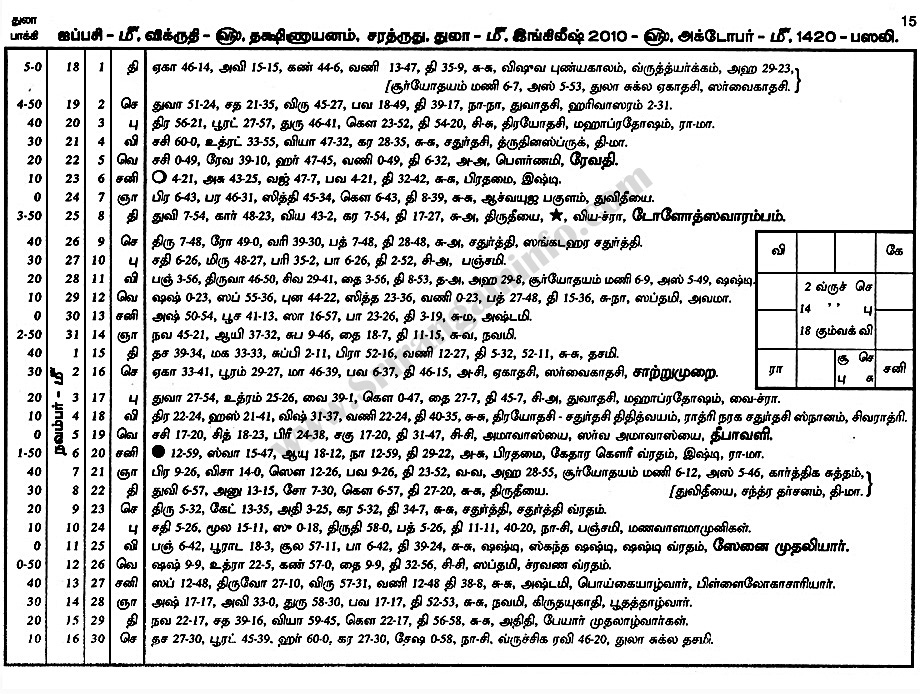 துலா 15
பாக்கி ஐப்பசி - மீ, விக்ருதி - ௵, தக்ஷிணாயனம், சரத்ருது, துலா - மீ, இங்கிலீஷ் 2010 - ௵, அக்டோபர் - மீ, 1420 - பஸலி.
5-0 18 1 தி ஏகா 46-14, அவி 15-15, கண் 44-6, வணி 13-47, தி 35-9, சு-சு, விஷுவ புண்யகாலம், வ்ருத்யர்க்கம், அஹ 29-23,
[சூர்யோதயம் மணி 6-7, அஸ் 5-53, துலா சுக்ல ஏகாதசி, ஸர்வைகாதசி.
4-50 19 2 செ துவா 51-24, சத 21-35, விரு 45-27, பவ 18-49, தி 39-17, நா-நா, துவாதசி, ஹரிவாஸரம் 2-31.
40 20 3 பு திர 56-21, பூரட் 27-57, துரு 46-41, கௌ 23-52, தி 54-20, சி-சு, திரயோதசி, மஹாப்ரதோஷம், ரா-மா.
30 21 4 வி சசி 60-0, உத்ரட் 33-55, வியா 47-32, கர 28-35, சு-சு, சதுர்தசி, த்ருதினஸ்ப்ருக், தி-மா.
20 22 5 வெ சசி 0-49, ரேவ 39-10, ஹர் 47-45, வணி 0-49, தி 6-32, அ-அ, பௌர்ணமி, ரேவதி.
10 23 6 சனி 4-21, அசு 43-25, வஜ் 47-7, பவ 4-21, தி 32-42, சு-சு, பிரதமை, இஷ்டி.
0 24 7 ஞா பிர 6-43, பர 46-31, ஸித்தி 45-34, கௌ 6-43, தி 8-39, சு-சு, ஆச்வயுஜ பகுளம், துவிதீயை.
3-50 25 8 தி துவி 7-54, கார் 48-23, விய 43-2, கர 7-54, தி 17-27, சு-அ, திருதீயை, ★, விய-ச்ரா, டோளோத்ஸவாரம்பம்.
40 26 9 செ திரு 7-48, ரோ 49-0, வரி 39-30, பத் 7-48, தி 28-48, சு-அ, சதுர்த்தி, ஸங்கடஹர சதுர்த்தி.
30 27 10 பு சதி 6-26, மிரு 48-27, பரி 35-2, பா 6-26, தி 2-52, சி-அ, பஞ்சமி.
20 28 11 வி பஞ் 3-56, திருவா 46-50, சிவ 29-41, தை 3-56, தி 8-53, த-அ, அஹ 29-8, சூர்யோதயம் மணி 6-9, அஸ் 5-49, ஷஷ்டி.
10 29 12 வெ ஷஷ் 0-23, ஸப் 55-36, புன 44-22, ஸித்த 23-36, வணி 0-23, பத் 27-48, தி 15-36, சு-நா, ஸப்தமி, அவமா.
0 30 13 சனி அஷ் 50-54, பூச 41-13, ஸா 16-57, பா 23-26, தி 3-19, சு-ம, அஷ்டமி.
2-50 31 14 ஞா நவ 45-21, ஆயி 37-32, சுப 9-46, தை 18-7, தி 11-15, சு-வ, நவமி.
40 1 15 தி தச 39-34, மக 33-33, சுப்பி 2-11, பிரா 52-16, வணி 12-27, தி 5-32, 52-11, சு-சு, தசமி.
30 2 16 செ ஏகா 33-41, பூரம் 29-27, மா 46-39, பவ 6-37, தி 46-15, அ-சி, ஏகாதசி, ஸர்வைகாதசி, சாற்றுமுறை.
20 3 17 பு துவா 27-54, உத்ரம் 25-26, வை 39-1, கௌ 0-47, தை 27-7, தி 45-7, சி-அ, துவாதசி, மஹாப்ரதோஷம், வை-ச்ரா.
10 4 18 வி திர 22-24, ஹஸ் 21-41, விஷ் 31-37, வணி 22-24, தி 40-35, சு-சு, திரயோதசி - சதுர்தசி திதித்வயம், ராத்ரி நரக சதுர்தசி ஸ்நானம், சிவராத்ரி.
0 5 19 வெ சசி 17-20, சித் 18-23, பிரீ 24-38, சகு 17-20, தி 31-47, சி-சி, அமாவாஸ்யை, ஸர்வ அமாவாஸ்யை, தீபாவளி.
1-50 6 20 சனி 12-59, ஸ்வா 15-47, ஆயு 18-12, நா 12-59, தி 29-22, அ-சு, பிரதமை, கேதார கௌரீ வ்ரதம், இஷ்டி, ரா-மா.
40 7 21 ஞா பிர 9-26, விசா 14-0, ஸௌ 12-26, பவ 9-26, தி 23-52, வ-வ, அஹ 28-55, சூர்யோதயம் மணி 6-12, அஸ் 5-46, கார்த்திக சுத்தம்,
30 8 22 தி துவி 6-57, அனு 13-15, சோ 7-30, கௌ 6-57, தி 27-20, சு-சு, திருதீயை. [துவிதீயை, சந்த்ர தர்சனம், தி-மா.
20 9 23 செ திரு 5-32, கேட் 13-35, அதி 3-25, கர 5-32, தி 34-7, சு-சு, சதுர்த்தி, சதுர்த்தி வ்ரதம்.
10 10 24 பு சதி 5-26, மூல 15-11, ஸு 0-18, திருதி 58-0, பத் 5-26, தி 11-11, 40-20, நா-சி, பஞ்சமி, மணவாளமாமுனிகள்.
0 11 25 வி பஞ் 6-42, பூராட 18-3, சூல 57-11, பா 6-42, தி 39-24, சு-சு, ஷஷ்டி, ஸ்கந்த ஷஷ்டி, ஷஷ்டி வ்ரதம், ஸேனை முதலியார்.
0-50 12 26 வெ ஷஷ் 9-9, உத்ரா 22-5, கண் 57-0, தை 9-9, தி 32-56, சி-சி, ஸப்தமி, ச்ரவண வ்ரதம்.
40 13 27 சனி ஸப் 12-48, திருவோ 27-10, விரு 57-31, வணி 12-48 தி 38-8, சு-சு, அஷ்டமி, பொய்கையாழ்வார், பிள்ளைலோகாசாரியார்.
30 14 28 ஞா அஷ் 17-17, அவி 33-0, துரு 58-30, பவ 17-17, தி 52-53, சு-சு, நவமி, கிருதயுகாதி, பூதத்தாழ்வார்.
20 15 29 தி நவ 22-17, சத 39-16, வியா 59-45, கௌ 22-17, தி 56-58, சு-சு, அதிதி, பேயார் முதலாழ்வார்கள்.
10 16 30 செ தச 27-30, பூரட் 45-39, ஹர் 60-0, கர 27-30, சேஷ 0-58, நா-சி, வ்ருச்சிக ரவி 46-20, துலா சுக்ல தசமி.
நவம்பர் - மீ
வி கே
2 வ்ருச் செ
14 ’ ’ பு
18 கும்வக் வி
ரா சூ செ சனி
பு சு
www.Srirangaminfo.com